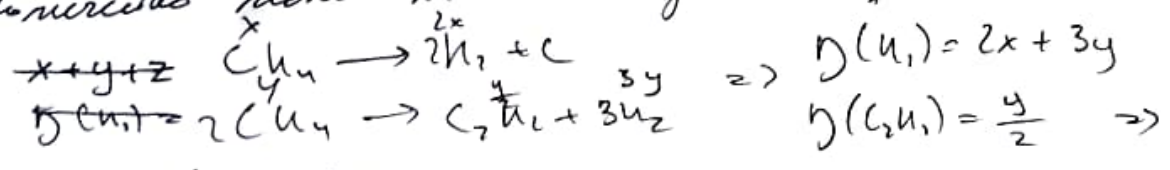 x+y+z CH₄ (x) → 2H₂ (2x) + C => ν(H₂) = 2x + 3y
ν(H₂) = 2CH₄ (y) → C₂H₂ (y) + 3H₂ (3y) ν(C₂H₂) = y/2 =>